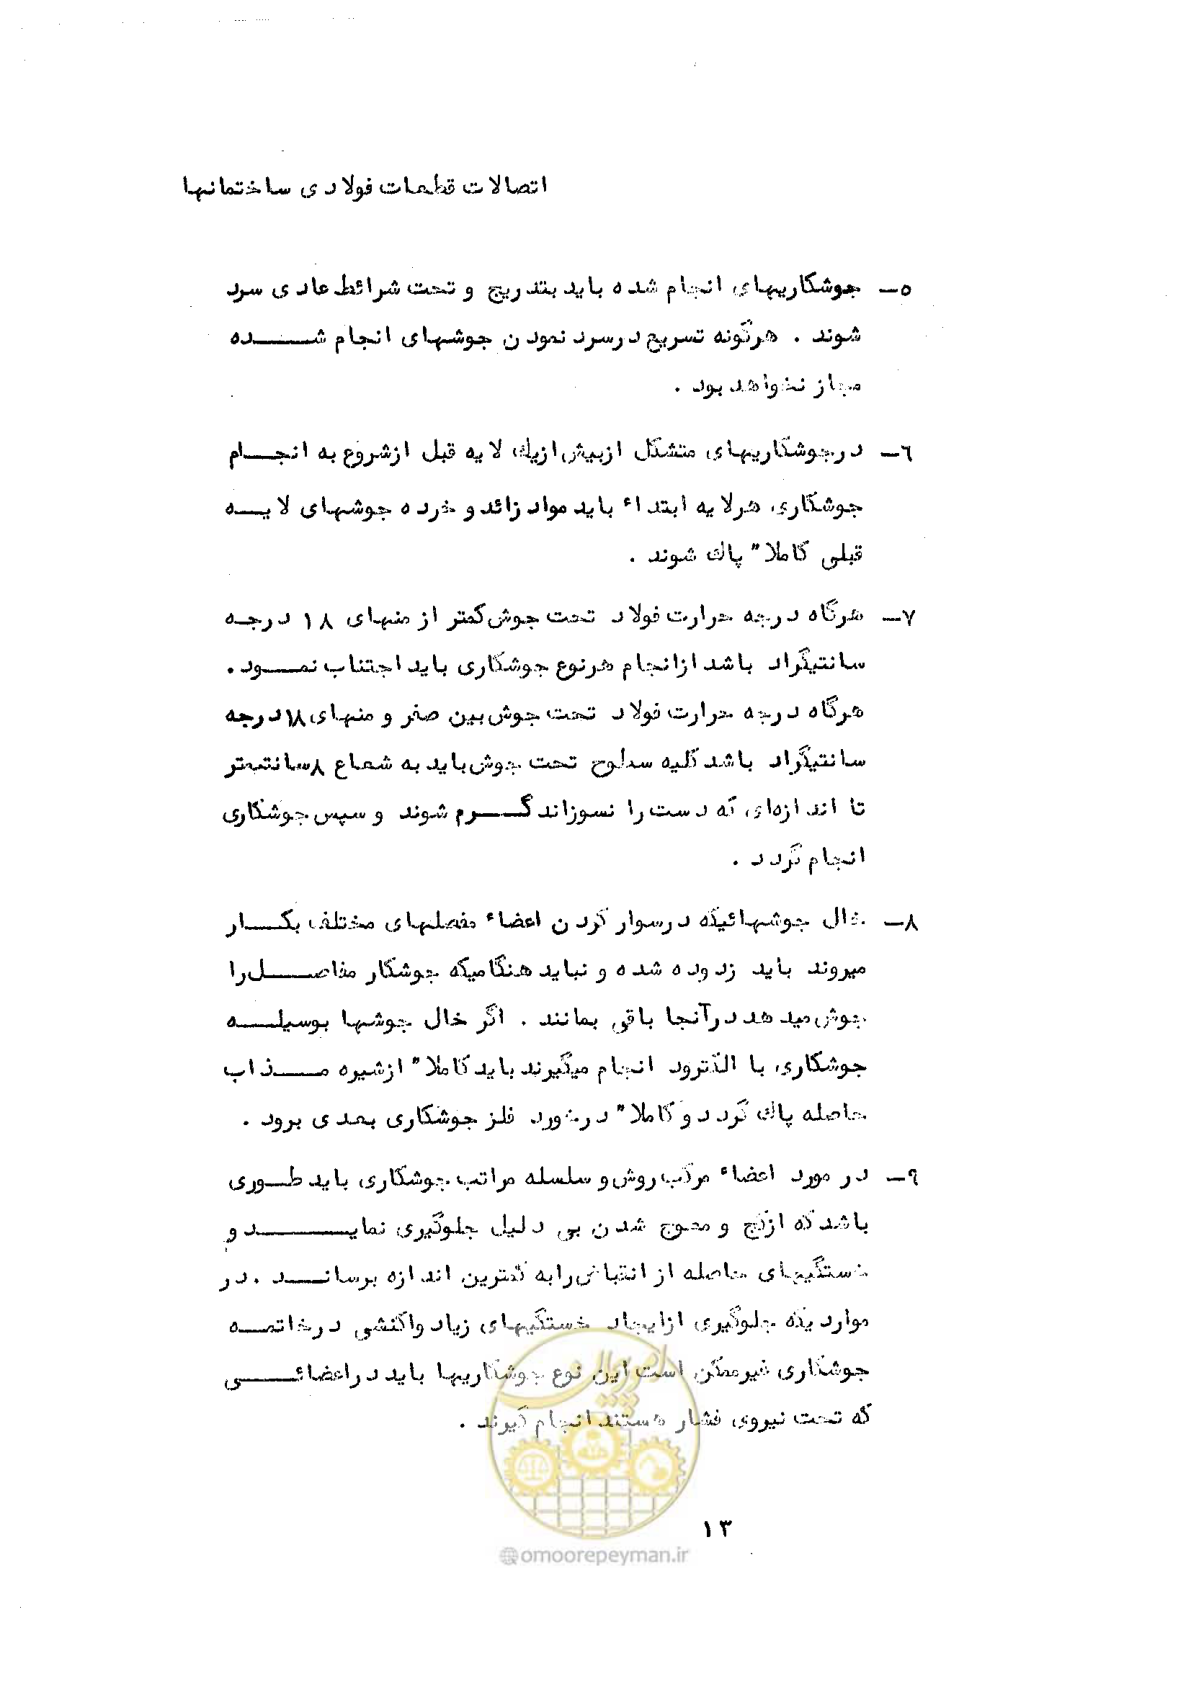 اتصالات قطعات فولادی ساختمانها
۵– جوشکاریهای انجام شده باید بتدریج و تحت شرائط عادی سرد
شوند . هرگونه تسریع درسرد نمودن جوشهای انجام شده
مجاز نخواهد بود .
۶– درجوشکاریهای متشکل ازبیش ازیک لایه قبل ازشروع به انجام
جوشکاری هرلایه ابتداء باید مواد زائد و خرده جوشهای لایه
قبلی کاملا" پاک شوند .
۷– هرگاه درجه حرارت فولاد تحت جوش کمتر از منهای ۱۸ درجه
سانتیگراد باشد ازانجام هرنوع جوشکاری باید اجتناب نمود .
هرگاه درجه حرارت فولاد تحت جوش بین صفر و منهای ۱۸ درجه
سانتیگراد باشد کلیه سطوح تحت جوش باید به شعاع ۸ سانتیمتر
تا اندازه‌ای که دست را نسوزاند گرم شوند و سپس جوشکاری
انجام گردد .
۸– خال جوشهائیکه درسوار کردن اعضاء مفصلهای مختلف بکار
میروند باید زدوده شده و نباید هنگامیکه جوشکار مفاصل را
جوش میدهد درآنجا باقی بمانند . اگر خال جوشها بوسیله
جوشکاری با الکترود انجام میگیرند باید کاملا" ازشیره مذاب
حاصله پاک گردد و کاملا" درخورد فلز جوشکاری بعدی برود .
۹– در مورد اعضاء مرکب روش و سلسله مراتب جوشکاری باید طوری
باشد که ازکج و معوج شدن بی دلیل جلوگیری نماید و
خستگیهای حاصله از انقباض رابه کمترین اندازه برساند . در
مواردیکه جلوگیری ازایجاد خستگیهای زیاد واکنشی درخاتمه
جوشکاری غیرممکن است این نوع جوشکاریها باید دراعضائی
که تحت نیروی فشار هستند انجام گیرند .
امور پیمان
۱۳
@omoorepeyman.ir